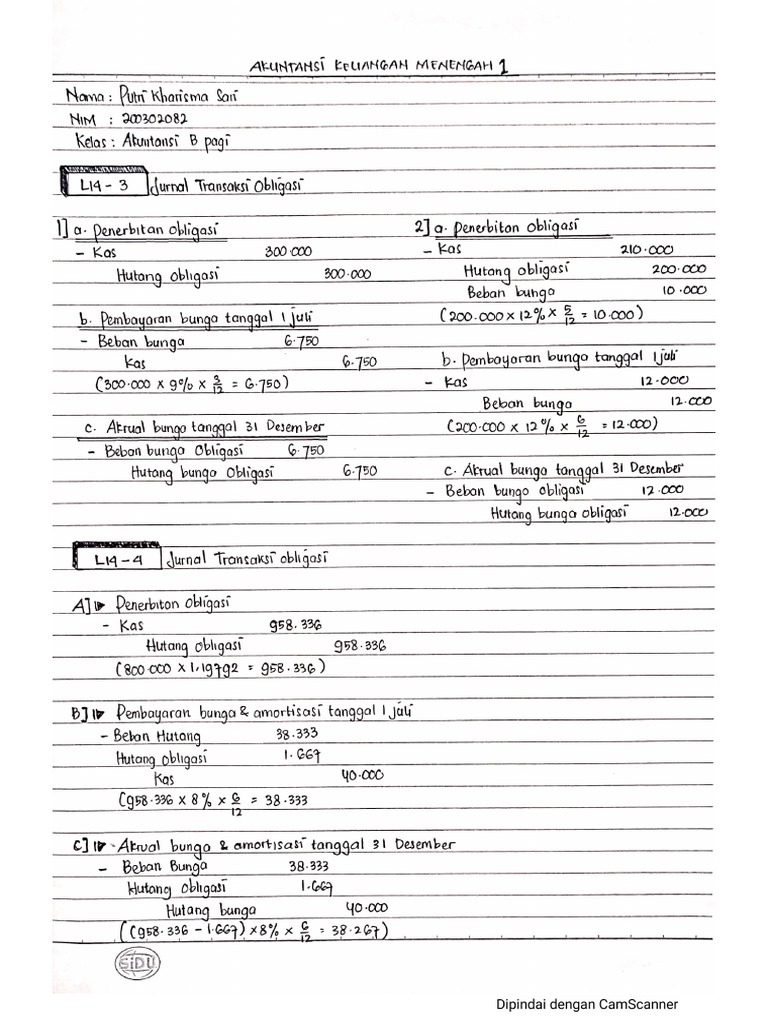 AKUNTANSI KEUANGAN MENENGAH 1
Nama : Putri Kharisma Sari
NIM : 200302082
Kelas : Akuntansi B pagi
L14 - 3 Jurnal Transaksi Obligasi
1] a. Penerbitan obligasi
- Kas 300.000
Hutang obligasi 300.000
b. Pembayaran bunga tanggal 1 juli
- Beban bunga 6.750
Kas 6.750
(300.000 x 9% x 3/12 = 6.750)
c. Akrual bunga tanggal 31 Desember
- Beban bunga Obligasi 6.750
Hutang bunga Obligasi 6.750
2] a. Penerbitan obligasi
- Kas 210.000
Hutang obligasi 200.000
Beban bunga 10.000
(200.000 x 12% x 5/12 = 10.000)
b. Pembayaran bunga tanggal 1 juli
- Kas 12.000
Beban bunga 12.000
(200.000 x 12% x 6/12 = 12.000)
c. Akrual bunga tanggal 31 Desember
- Beban bunga obligasi 12.000
Hutang bunga obligasi 12.000
L14 - 4 Jurnal Transaksi obligasi
A] Penerbitan Obligasi
- Kas 958.336
Hutang obligasi 958.336
(800.000 x 1,19792 = 958.336)
B] Pembayaran bunga & amortisasi tanggal 1 juli
- Beban Hutang 38.333
Hutang obligasi 1.667
Kas 40.000
(958.336 x 8% x 6/12 = 38.333
C] - Akrual bunga & amortisasi tanggal 31 Desember
- Beban Bunga 38.333
Hutang obligasi 1.667
Hutang bunga 40.000
((958.336 - 1.667) x 8% x 6/12 = 38.267)
SiDU
Dipindai dengan CamScanner